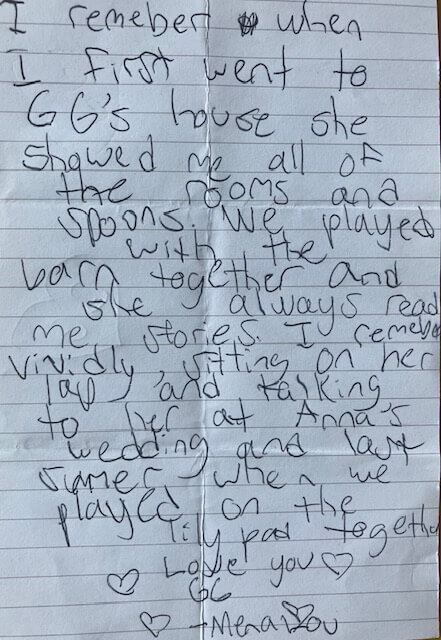 I remeber when
I first went to
GG's house she
showed me all of
the rooms and
spoons. We played
with the
barn together and
she always read
me stories. I remeber
vividly, sitting on her
lap and talking
to her at Anna's
wedding and last
sumer, when we
played on the
lily pad together
Love you
GG
-Menai